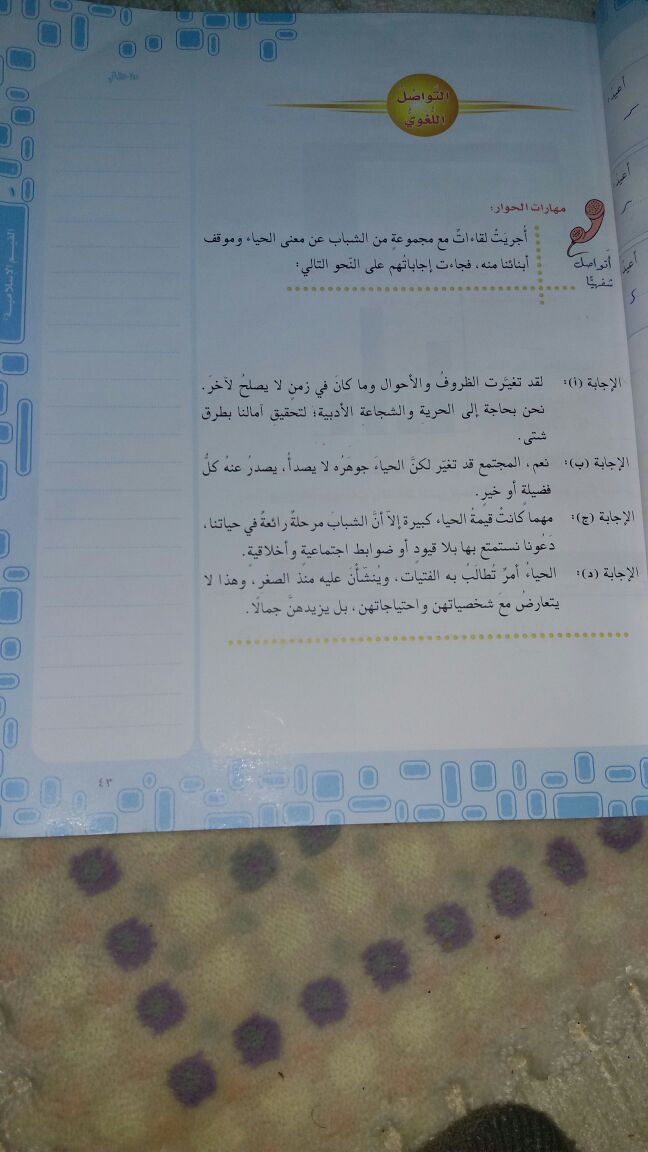 ملاحظاتي
التَّواصُلُ
اللُّغَويُّ
١
القيم الإسلامية
مهارات الحوار:
أتواصل
شفهيًّا
أُجريَتْ لقاءاتٌ مع مجموعةٍ من الشباب عن معنى الحياء وموقف
أبنائنا منه، فجاءت إجاباتُهم على النَحو التالي:
الإجابة (أ): لقد تغيَّرت الظروفُ والأحوال وما كانَ في زمنٍ لا يصلحُ لآخرَ.
نحن بحاجة إلى الحرية والشجاعةِ الأدبية؛ لتحقيقِ آمالنا بطرق
شتى.
الإجابة (ب): نعم، المجتمع قد تغيّر لكنَّ الحياءَ جوهَرُه لا يصدأُ، يصدرُ عنهُ كلُّ
فضيلةٍ أو خيرٍ.
الإجابة (ج): مهما كانتْ قيمةُ الحياء كبيرة إلاَّ أنَّ الشبابَ مرحلةٌ رائعةٌ في حياتنا،
دَعُونا نستمتع بها بلا قيودٍ أو ضوابط اجتماعيةٍ وأخلاقيةٍ.
الإجابة (د): الحياءُ أمرٌ تُطالَبُ به الفتيات، ويُنشَّأْنَ عليه منذ الصغرِ، وهذا لا
يتعارضُ معَ شخصياتهن واحتياجاتهن، بل يزيدهنَّ جمالًا.
٤٣
أعيد
أعيد
أعيد